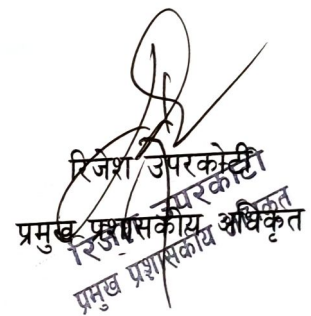 रिजेश उपरकोटी
प्रमुख प्रशासकीय अधिकृत
रिजेश उपरकोटी
प्रमुख प्रशासकीय अधिकृत